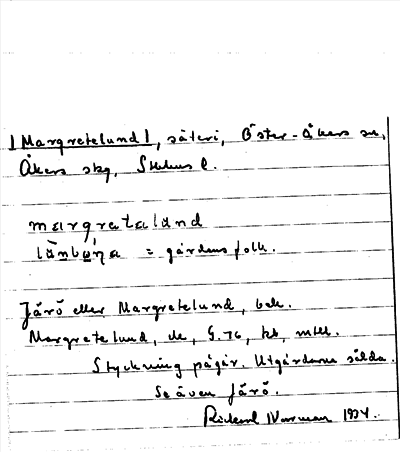 [Margretelund], säteri, Öster-Åkers sn,
Åkers skg, Sthlms l.
margrataland
länbuṇa = gårdens folk.
Järö eller Margretelund, bek.
Margretelund, de, G. 76, kb, mtll.
Styckning pågår. Utgårdarna sålda.
Se även Järö.
Rickard Norman 1934.